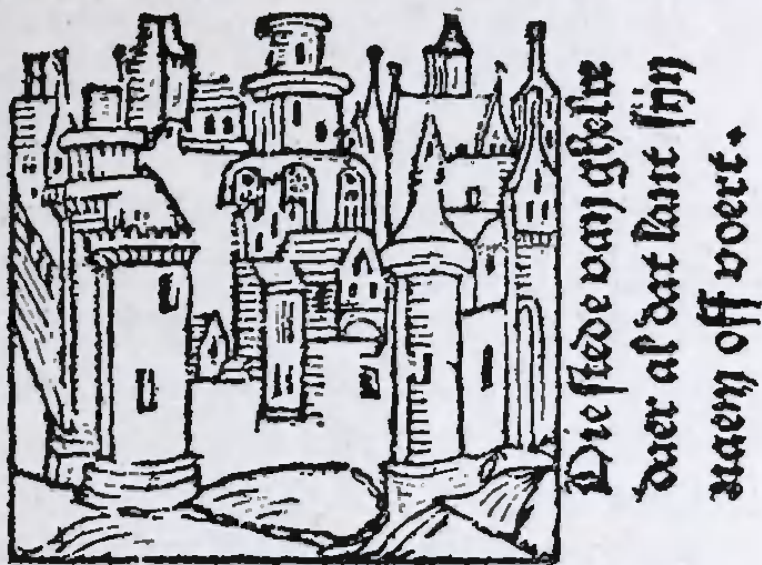 Die stede van ghelre
daer al dat lant sijn
naem off voert.